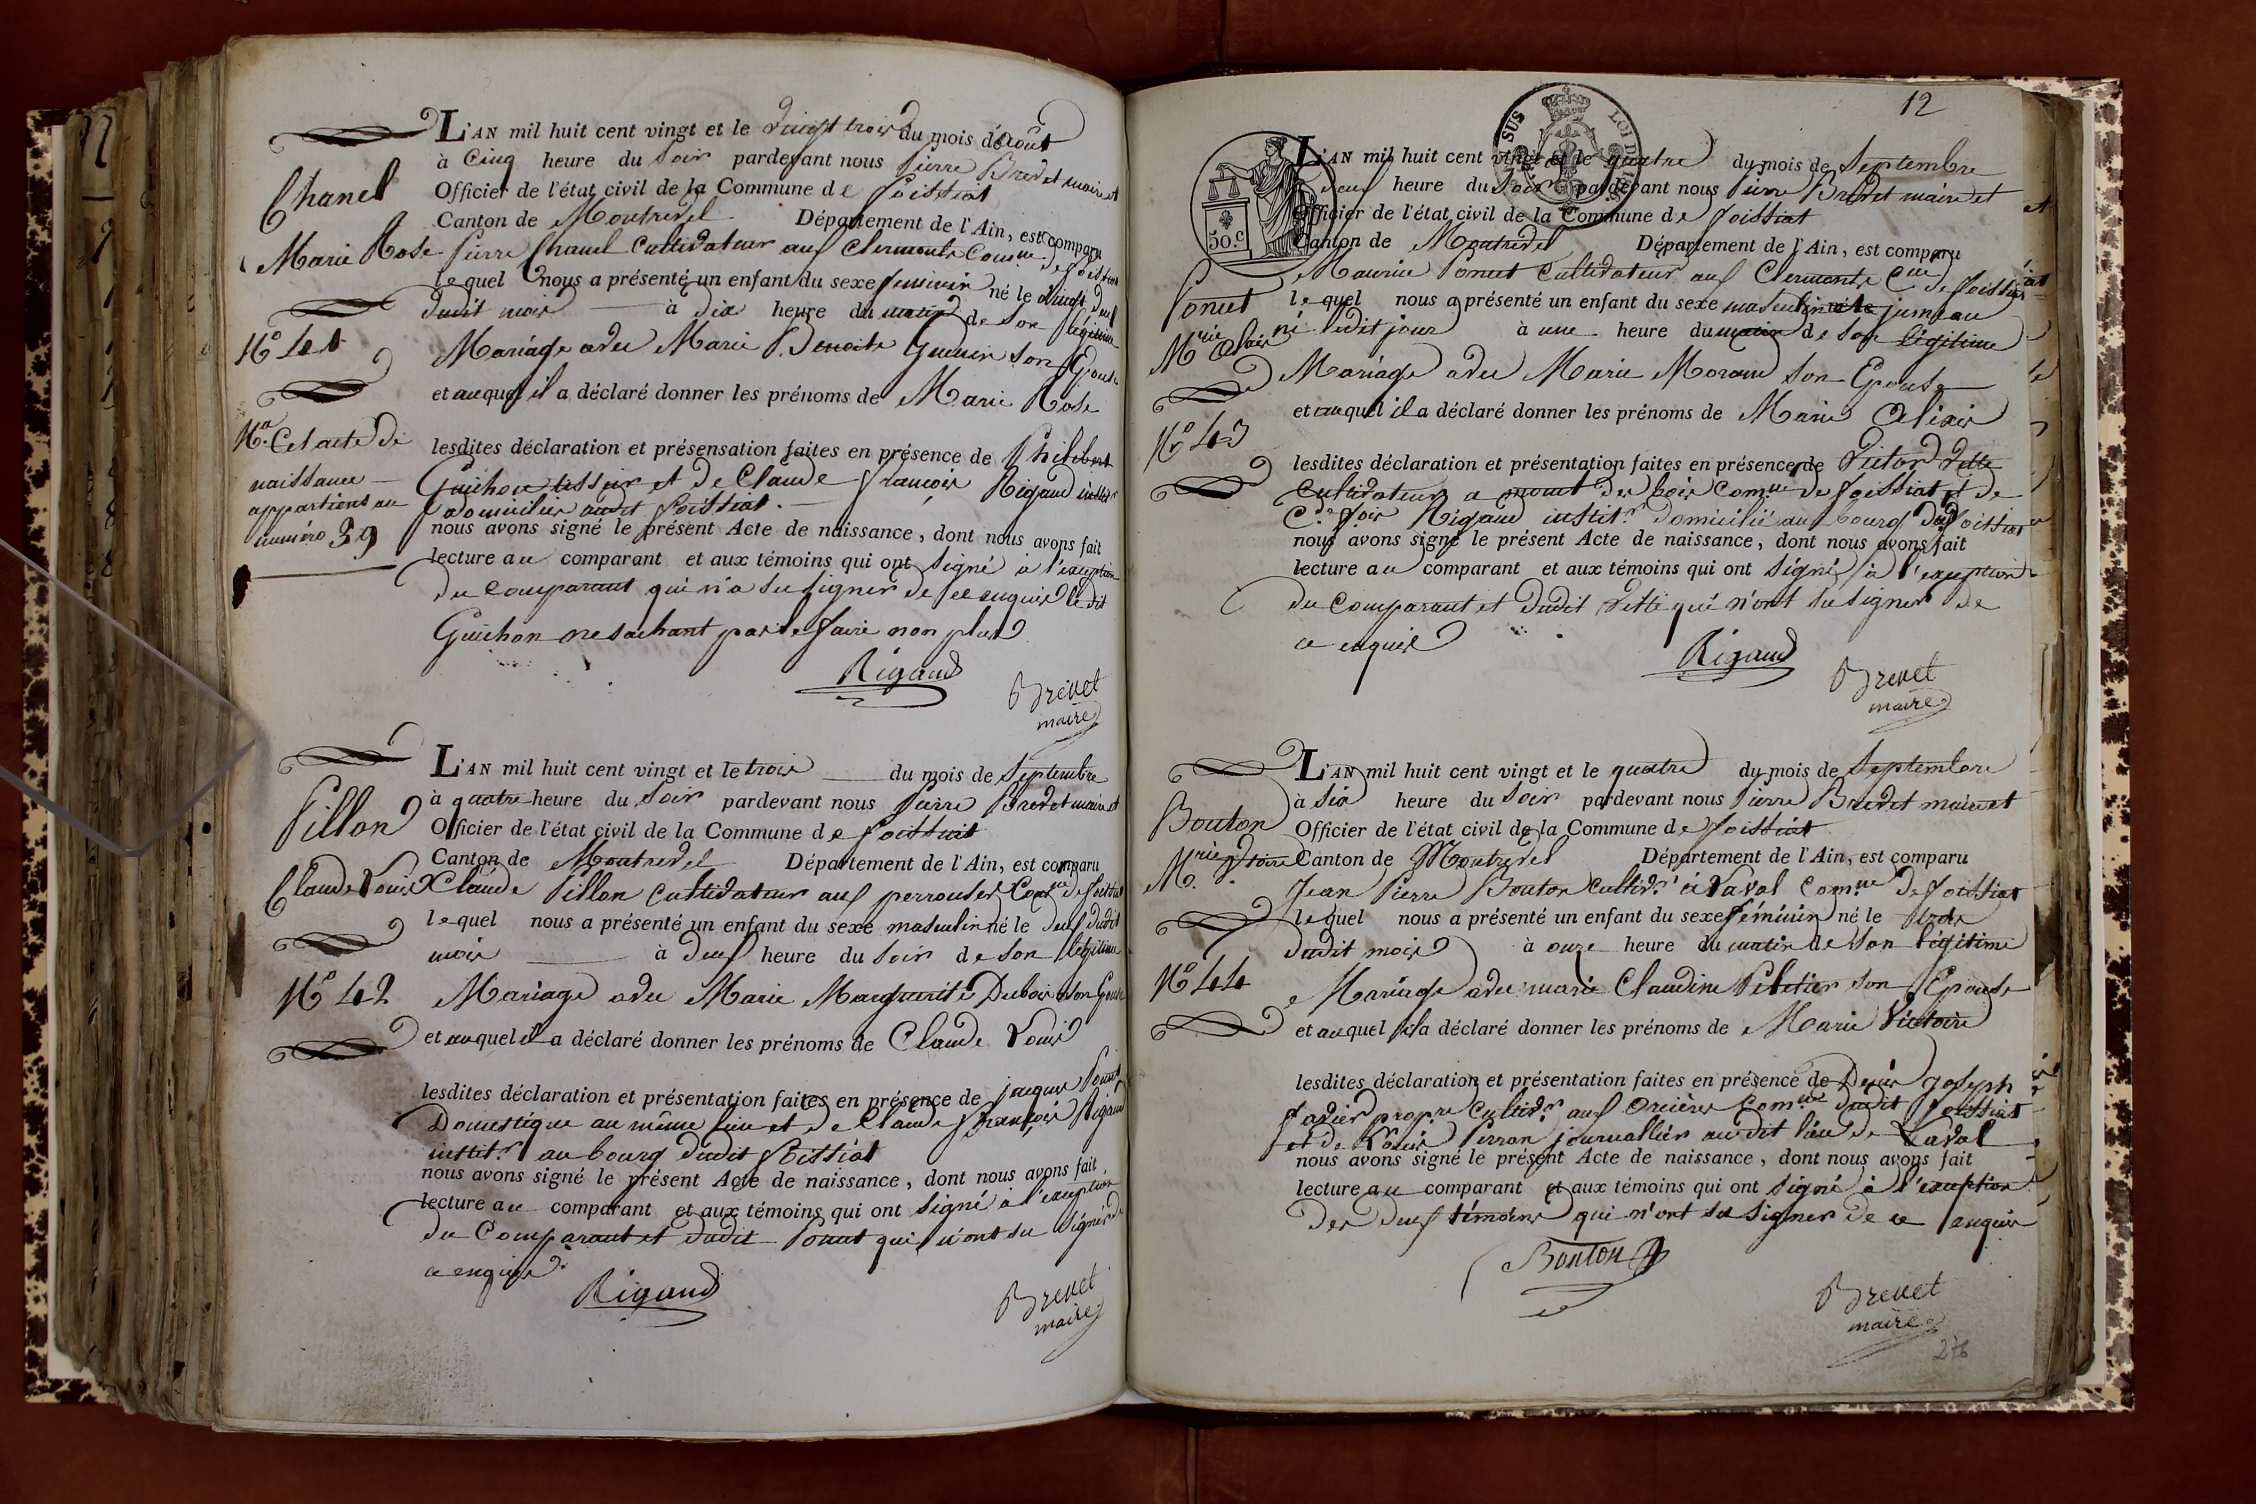 L'AN mil huit cent vingt et le vingt trois du mois d'août
à Cinq heure du Soir pardevant nous Pierre Brevet maire et
Officier de l'état civil de la Commune de Foissiat
Canton de Montrevel Département de l'Ain, est comparu
Pierre Chanel Cultivateur aux Clermonts Comne de Foissiat
lequel nous a présenté un enfant du sexe feminin né le vingt deux
dudit mois à dix heure du matin de son légitime
Mariage avec Marie Benoite Guenin son Epouse
et auquel il a déclaré donner les prénoms de Marie Rose
lesdites déclaration et présensation faites en présence de Philibert
Guichon tissier et de Claude François Rigaud instit.r
domiciliés audit Foissiat.
nous avons signé le présent Acte de naissance, dont nous avons fait
lecture au comparant et aux témoins qui ont signé à l'exception
du comparant qui n'a su signer de ce enquis le dit
Guichon ne sachant pas le faire non plus
Rigaud
Brevet
maire
Chanel
Marie Rose
No 41
Na Cet acte de
naissance
appartient au
numéro 39
L'AN mil huit cent vingt et le trois du mois de Septembre
à quatre heure du Soir pardevant nous Pierre Brevet maire et
Officier de l'état civil de la Commune de Foissiat
Canton de Montrevel Département de l'Ain, est comparu
Claude Pillon Cultivateur aux perrouses Comne de Foissiat
lequel nous a présenté un enfant du sexe masculin né le deux dudit
mois à deux heure du Soir de son légitime
Mariage avec Marie Marguerite Dubois son Epouse
et auquel il a déclaré donner les prénoms de Claude Louis
lesdites déclaration et présentation faites en présence de jacques Ponut
Domestique au même lieu et de Claude François Rigaud
instit.r au bourg dudit Foissiat
nous avons signé le présent Acte de naissance, dont nous avons fait
lecture au comparant et aux témoins qui ont signé à l'exception
du Comparant et dudit Ponut qui n'ont su signer de
ce enquis
Rigaud
Brevet
maire
Pillon
Claude Louis
No 42
12
SUS LOI DE 1816
50.c
L'AN mil huit cent vingt et le quatre du mois de Septembre
deux heure du Soir pardevant nous Pierre Brevet maire et
Officier de l'état civil de la Commune de Foissiat
Canton de Montrevel Département de l'Ain, est comparu
Maurice Ponut Cultivateur aux Clermonts Cne de Foissiat
lequel nous a présenté un enfant du sexe masculin né le jumeau
né ledit jour à une heure du matin de son légitime
Mariage avec Marie Morand son Epouse
et auquel il a déclaré donner les prénoms de Marie Alixis
lesdites déclaration et présentation faites en présence de Victor Vette
Cultivateur a mont des bois Comne de Foissiat et de
Cde Fois Rigaud instit.r domicilié au bourg dud Foissiat
nous avons signé le présent Acte de naissance, dont nous avons fait
lecture au comparant et aux témoins qui ont signé à l'exception
du comparant et dudit Vette qui n'ont su signer de
ce enquis
Rigaud
Brevet
maire
Ponut
Mrie Alixis
No 43
L'AN mil huit cent vingt et le quatre du mois de Septembre
à six heure du Soir pardevant nous Pierre Brevet maire et
Officier de l'état civil de la Commune de Foissiat
Canton de Montrevel Département de l'Ain, est comparu
Jean Pierre Bouton Cultiv.r à Laval Comne de Foissiat
lequel nous a présenté un enfant du sexe féminin né le trois
dudit mois à onze heure du matin de son légitime
Mariage avec marie Claudine Peletier son Epouse
et auquel il a déclaré donner les prénoms de Marie Victoire
lesdites déclaration et présentation faites en présence de Denis Joseph
Favier propre Cultiv.r aux Orcières Comne dudit Foissiat
et de Louis Perron journallier au dit lieu de Laval
nous avons signé le présent Acte de naissance, dont nous avons fait
lecture au comparant et aux témoins qui ont signé à l'exception
des deux témoins qui n'ont su signer de ce enquis
Bouton
Brevet
maire
Bouton
Mrie Vtoire
No 44
276